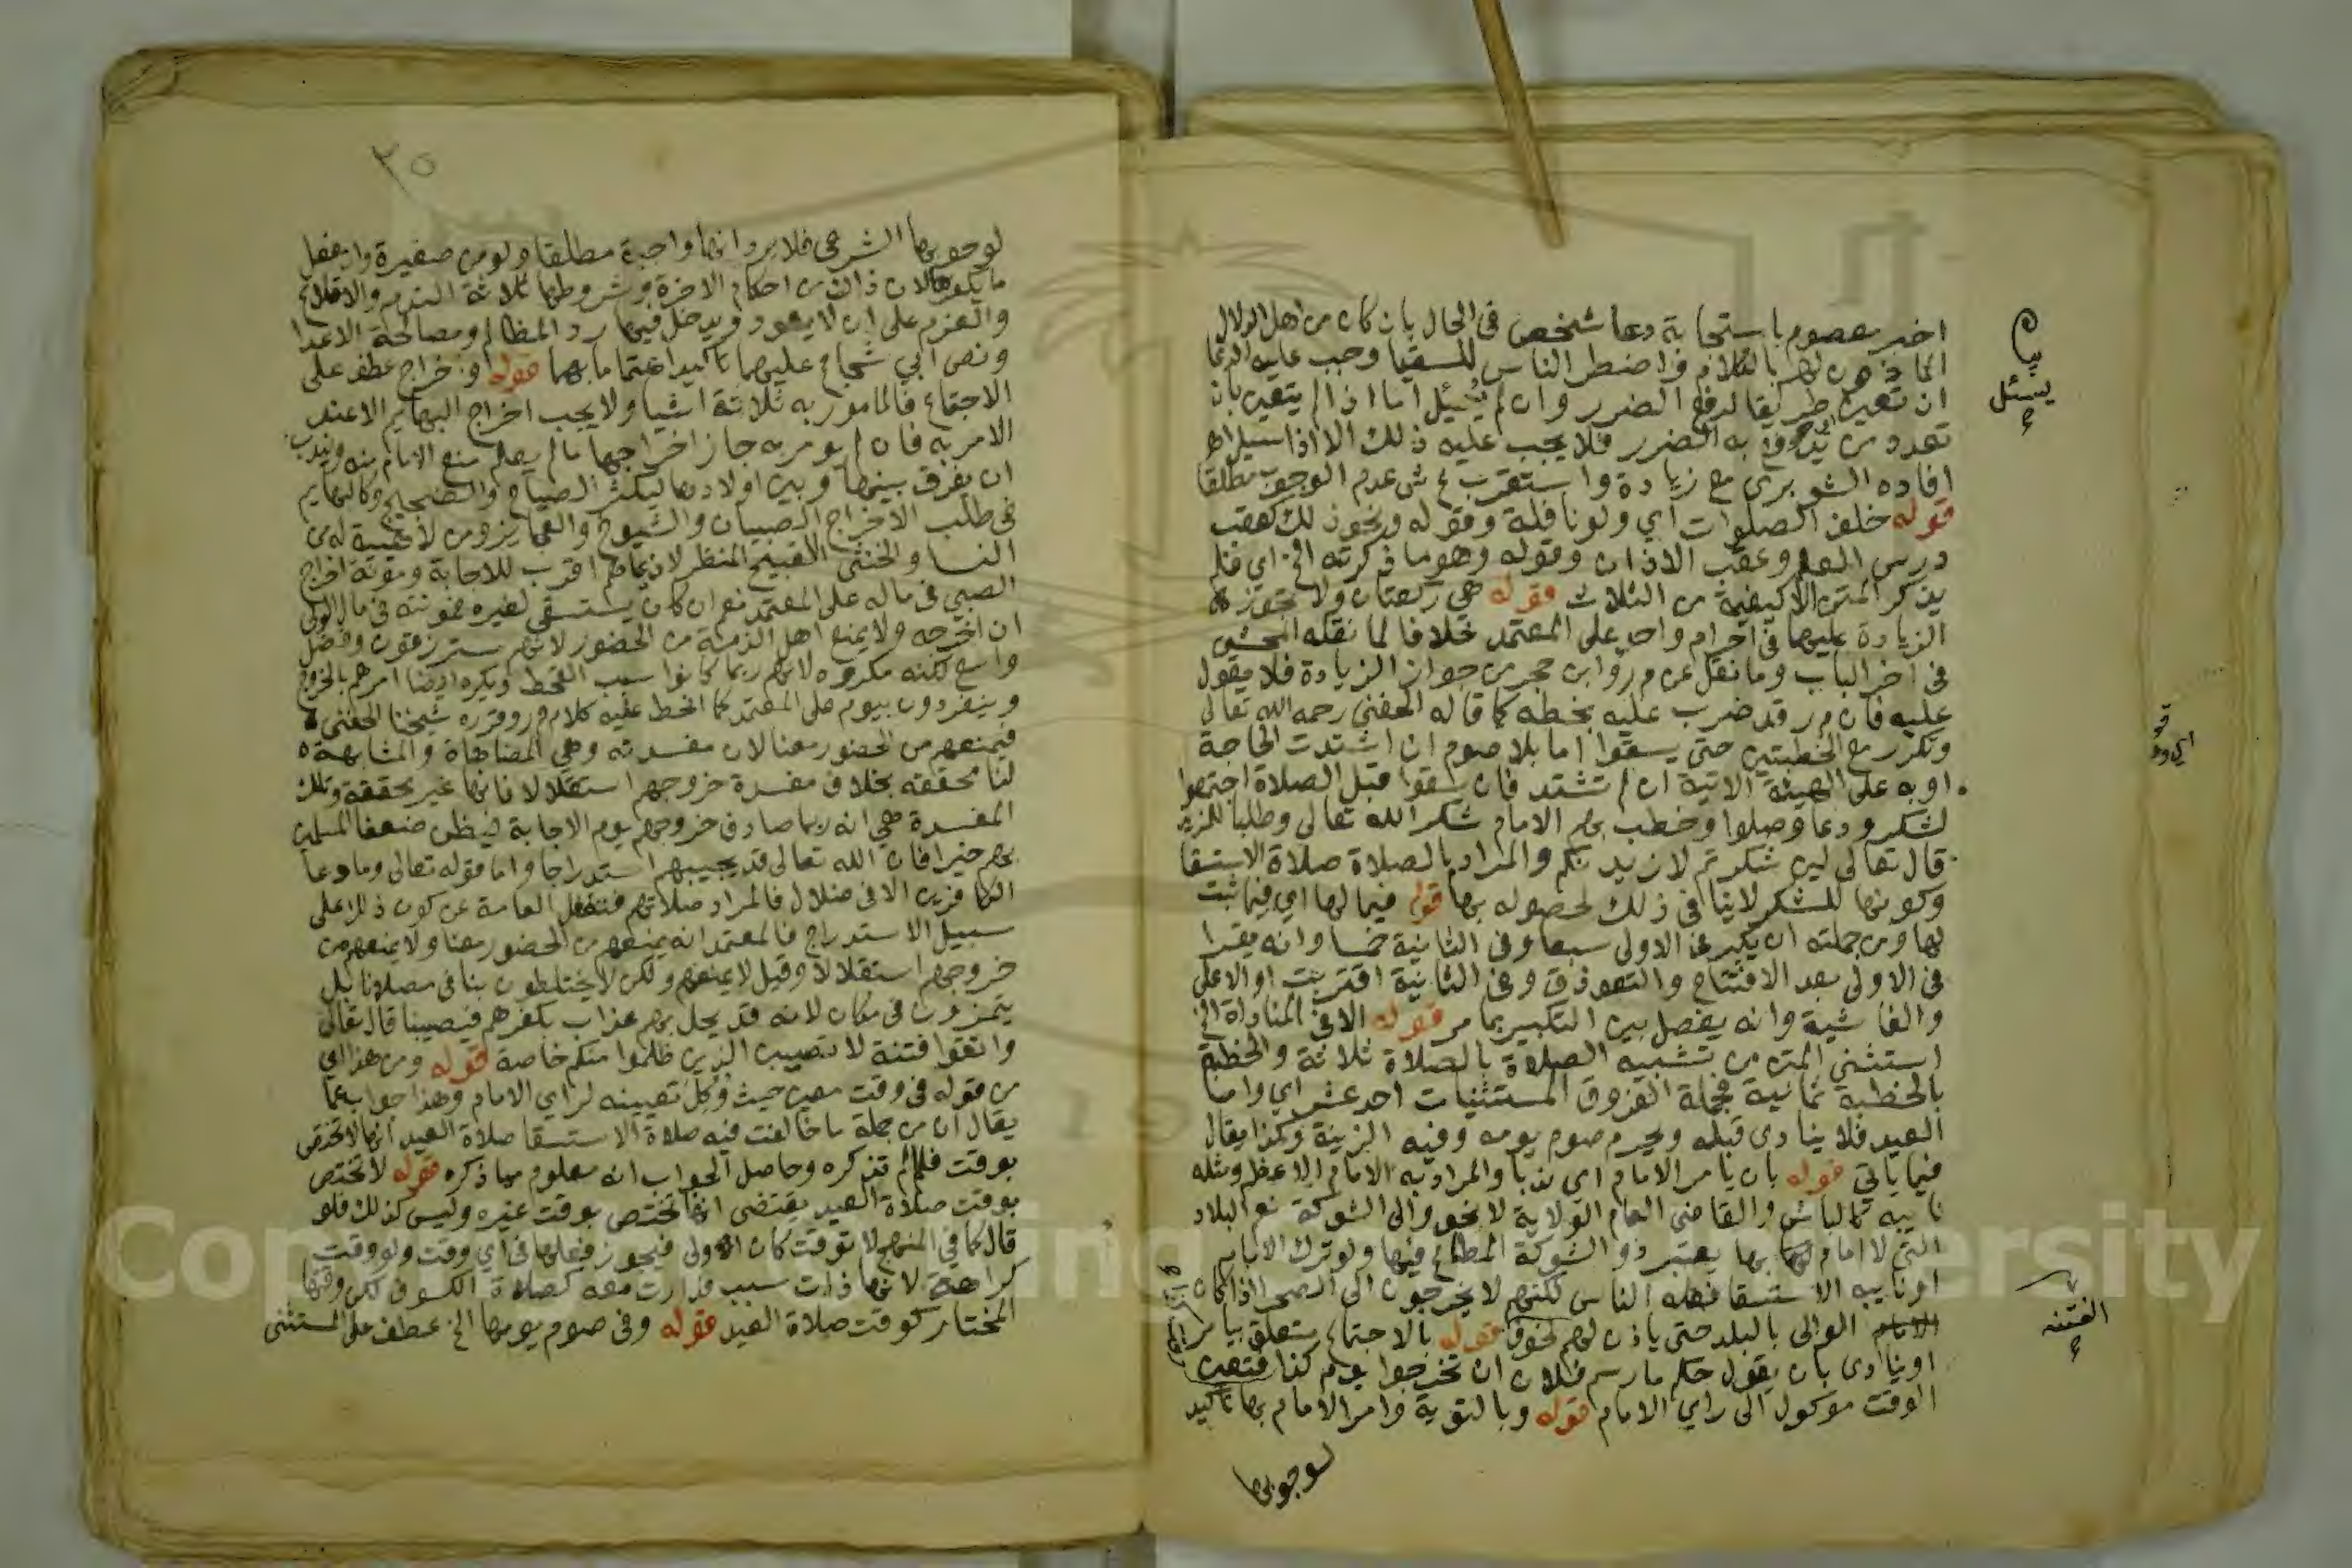 اخبر معصوم باستجابة دعا شخص فى الحال بان كان من اهل الدلال
الماذون لهم بالكلام فاضطر الناس للسقيا وجب عليه الدعا
ان تعين طريقا لدفع الضرر وان لم يسئل اما اذا لم يتعين بان
تعدد من يندفع به الضرر فلا يجب عليه ذلك الا اذا سيل اهـ
افاده الشوبرى مع زيادة واستقرب ع ش عدم الوجوب مطلقا
قوله خلف الصلوات اي ولو نافلة وقوله ونحو ذلك كعقب
درس العلم وعقب الاذان وقوله وهو ما ذكرته الخ اي فلم
يذكر المتن الا كيفية من الثلاث قوله هي ركعتان ولا تجوز
الزيادة عليها فى احرام واحد على المعتمد خلافا لما نقله المحشى
فى اخر الباب وما نقل عن م ر وابن حجر من جواز الزيادة فلا يعول
عليه فان م ر قد ضرب عليه بخطه كما قاله الحفني رحمه الله تعالى
وتكرر مع الخطبتين حتى يسقوا اما بلا صوم ان اشتدت الحاجة
او به على الهيئة الاتية ان لم تشتد فان سقوا قبل الصلاة اجتمعوا
لشكر ودعا وصلوا وخطب بهم الامام شكرا لله تعالى وطلبا للمزيد
قال تعالى لين شكرتم لازيدنكم والمراد بالصلاة صلاة الاستسقا
وكونها للشكر لا ينافى ذلك لحصوله بها قوله فيما لها اي فيما ثبت
لها ومن جملته ان يكبر فى الاولى سبعا وفى الثانية خمسا وانه يقرا
فى الاولى بعد الافتتاح والتعوذ ق وفى الثانية اقتربت او الاعلى
والغاشية وانه يفصل بين التكبير بما مر قوله الا فى المناداة الخ
استثنى المتن من تشبيه الصلاة بالصلاة ثلاثة والخطبة
بالخطبة ثمانية فجملة الفروق المستثنيات احد عشر اي واما
العيد فلا ينادى قبله ويحرم صوم يومه وفيه الزينة وكذا يقال
فيما ياتي قوله بان يامر الامام اي ندبا والمراد به الامام الاعظم ومثله
نايبه كالباش والقاضى العام الولاية لا نحو والى الشوكة نعم البلاد
التى لا امام لها بها يعتبر ذو الشوكة المطاع فيها ولو ترك الامام
او نايبه الاستسقا فعله الناس لكنهم لا يخرجون الى الصحرا اذا كان
الوالى بالبلد حتى ياذن لهم لخوف قوله بالاجتماع متعلق بيامر
او ينادى بان يقول حكم ما رسم فلان ان تخرجوا يوم كذا فتعين
الوقت موكول الى راي الامام قوله وبالتوبة وامر الامام بها تاكيد
لوجوبها
يسئل
الفتنه
٢٥
لوجوبها الشرعى فلا يرد انها واجبة مطلقا ولو من صغيرة وان فعل
ما يكفرها لان ذلك من احكام الاخرة وشروطها ثلاثة الندم والاقلاع
والعزم على ان لا يعود ويدخل فيها رد المظالم ومصالحة الاعدا
ونص ابي شجاع عليهما تاكيدا اهتماما بهما قوله او خراج عطف على
الاجتماع فالمامور به ثلاثة اشيا ولا يجب اخراج البهايم الا عند
الامر به فان لم يومر به جاز اخراجها ما لم يعلم منع الامام منه ويندب
ان يفرق بينها وبين اولادها ليكثر الصياح والضجيج وكالبهايم
فى طلب الاخراج الصبيان والشيوخ والعجايز ومن لا هيبة له من
النسا والخنثى القبيح المنظر لان دعاهم اقرب للاجابة ومونة اخراج
الصبي فى ماله على المعتمد نعم ان كان يستسقى لغيره فمونته فى مال الولى
ان اخرجه ولا يمنع اهل الذمة من الحضور لانهم مسترزقون وفضل الله
واسع لكنه مكروه لانهم ربما كانوا سبب القحط ويكره ايضا امرهم بالخروج
وينفردون بيوم على المعتمد كما انحط عليه كلام م ر وقرره شيخنا الحفنى
فيمنعهم من الحضور معنا لان مفسدته وهي المضاهاة والمشابهة
لنا محققه بخلاف مفسدة خروجهم استقلالا فانها غير محققة وتلك
المفسدة هي انه ربما صادف خروجهم يوم الاجابة فيظن ضعفا المسلمين
بهم خيرا فان الله تعالى قد يجيبهم استدراجا واما قوله تعالى وما دعا
الكافرين الا فى ضلال فالمراد صلاتهم فتغفل العامة عن كون ذلك على
سبيل الاستدراج فالمعتمد انه يمنعهم من الحضور معنا ولا يمنعهم من
خروجهم استقلالا وقيل لا يمنعهم ولكن لا يختلطون بنا فى مصلانا بل
يتميزون فى مكان لانه قد يحل بهم عذاب بكفرهم فيصيبنا قال تعالى
واتقوا فتنة لا تصيبن الذين ظلموا منكم خاصة قوله ومن هذا اي
من قوله فى وقت معين حيث وكل تعيينه لراي الامام وهذا جواب عما
يقال ان من جملة ما خالفت فيه صلاة الاستسقا صلاة العيد انها لا تختص
بوقت فلم لم تذكره وحاصل الجواب انه معلوم مما ذكره قوله لا تختص
بوقت صلاة العيد يقتضى انها تختص بوقت غيره وليس كذلك فلو
قال كما في المنهج لا توقت كان اولى فيجوز فعلها فى اي وقت ولو وقت
كراهة لانها ذات سبب فدارت معه كصلاة الكسوف لكن وقتها
المختار كوقت صلاة العيد قوله وفى صوم يومها الخ عطف على المستثنى